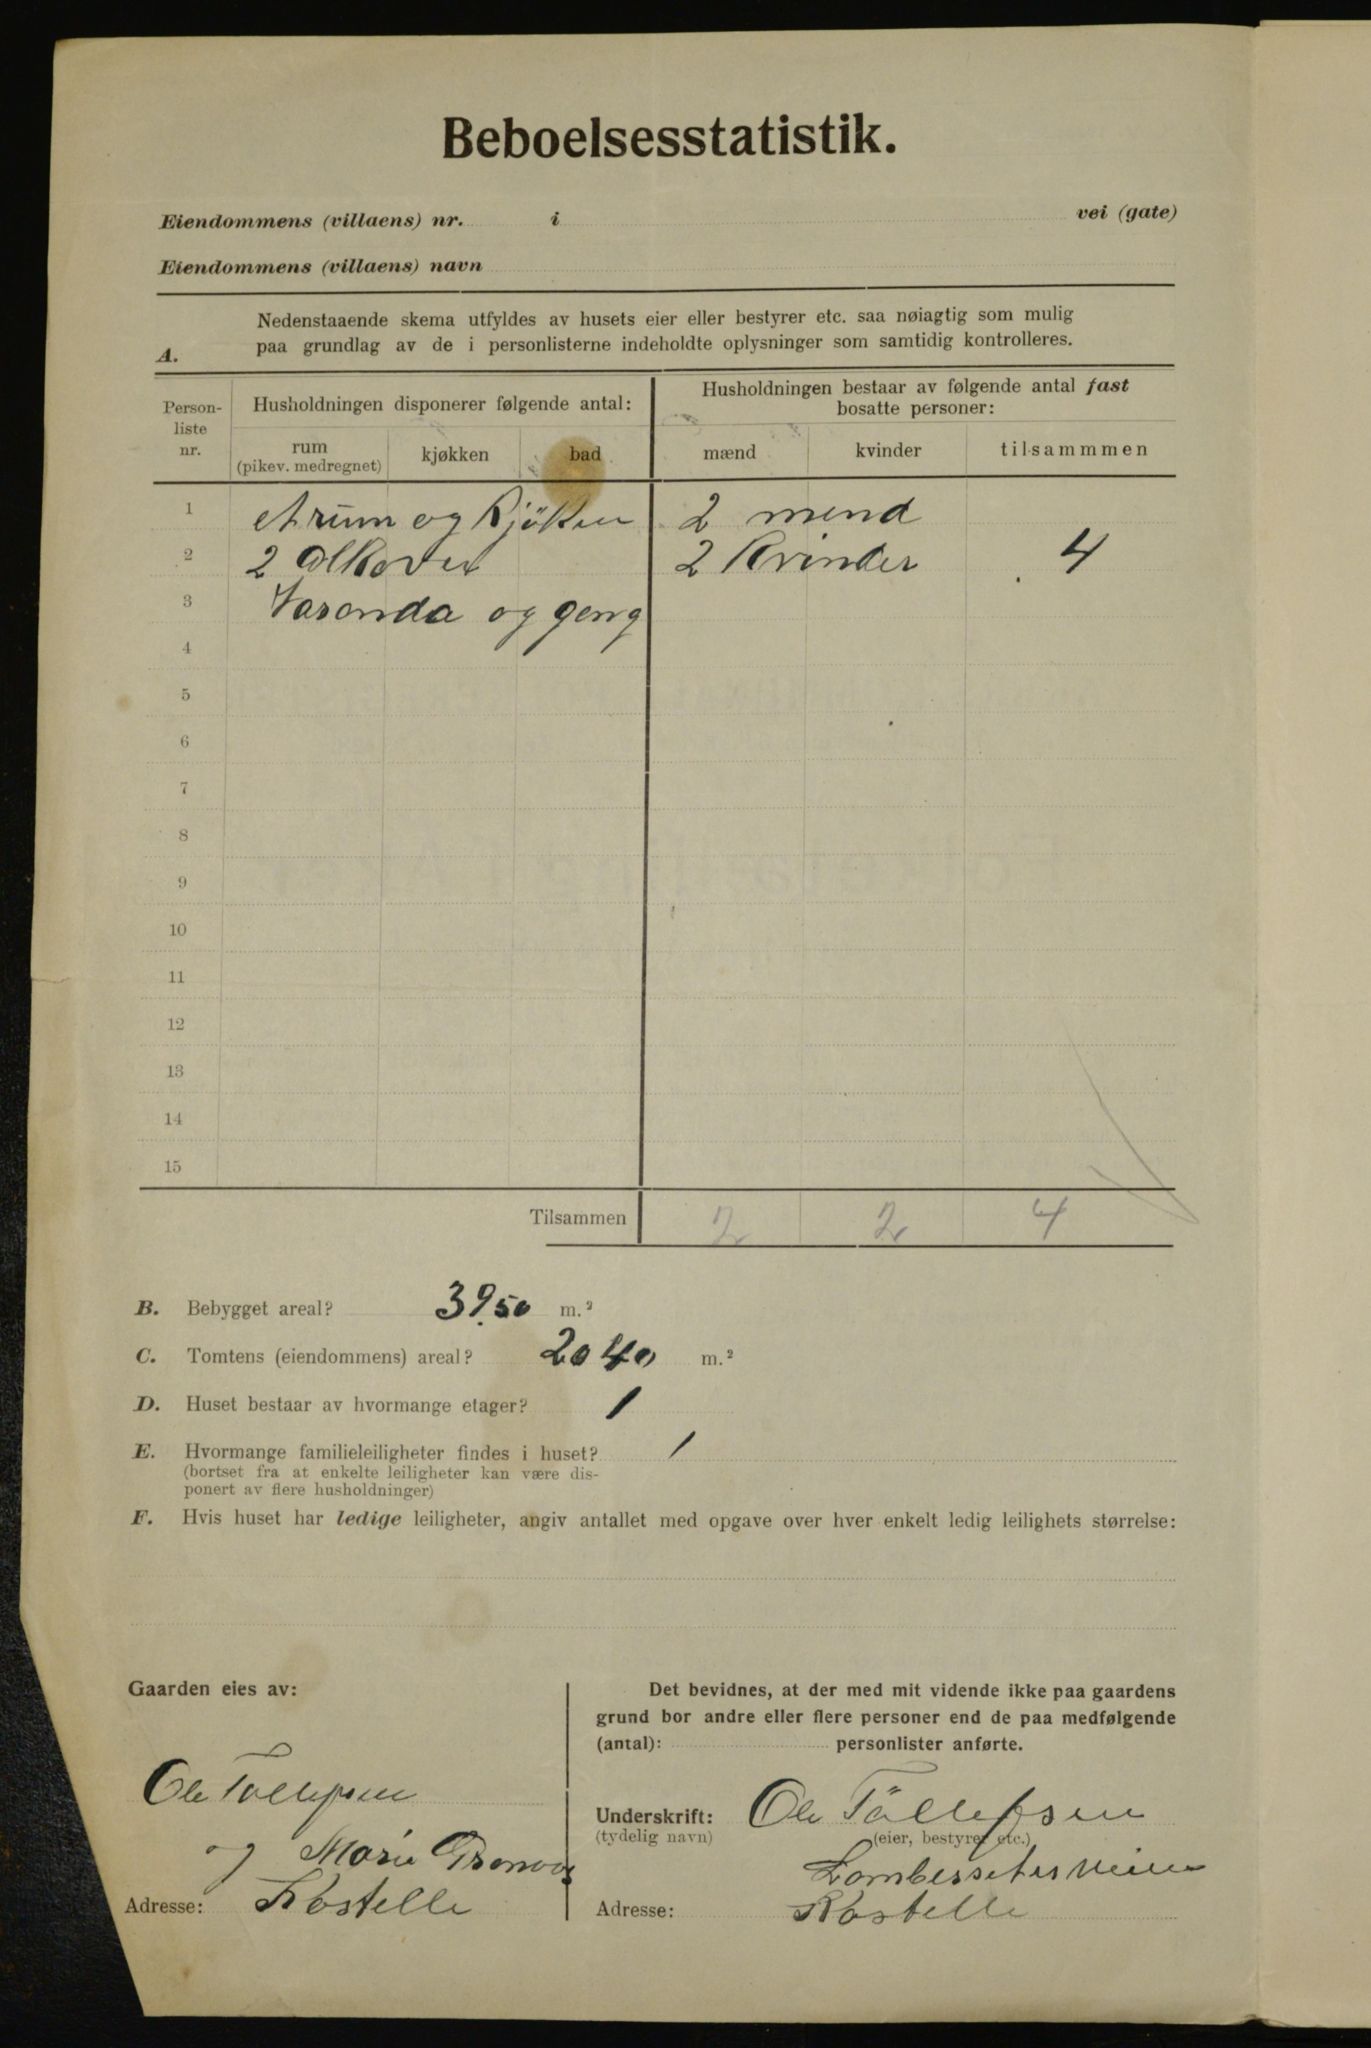 Beboelsesstatistik.
Eiendommens (villaens) nr. i vei (gate)
Eiendommens (villaens) navn
A. Nedenstaaende skema utfyldes av husets eier eller bestyrer etc. saa nøiagtig som mulig
paa grundlag av de i personlisterne indeholdte oplysninger som samtidig kontrolleres.
Person-
liste
nr.
Husholdningen disponerer følgende antal:
rum
(pikev. medregnet)
kjøkken
bad
Husholdningen bestaar av følgende antal fast
bosatte personer:
mænd
kvinder
tilsammmen
1 rum og Kjöken 2 mend
2 2 Alkover 2 Kvinder 4
3 Varenda og geng
4
5
6
7
8
9
10
11
12
13
14
15
Tilsammen 2 2 4
B. Bebygget areal? 39.50 m.²
C. Tomtens (eiendommens) areal? 2040 m.²
D. Huset bestaar av hvormange etager? 1
E. Hvormange familieleiligheter findes i huset? 1
(bortset fra at enkelte leiligheter kan være dis-
ponert av flere husholdninger)
F. Hvis huset har ledige leiligheter, angiv antallet med opgave over hver enkelt ledig leilighets størrelse:
Gaarden eies av:
Ole Tollefsen
og Marie
Adresse: Kostelle
Det bevidnes, at der med mit vidende ikke paa gaardens
grund bor andre eller flere personer end de paa medfølgende
(antal): personlister anførte.
Underskrift: Ole Töllefsen
(tydelig navn) (eier, bestyrer etc.)
Lambersseter veien
Adresse: Kostelle